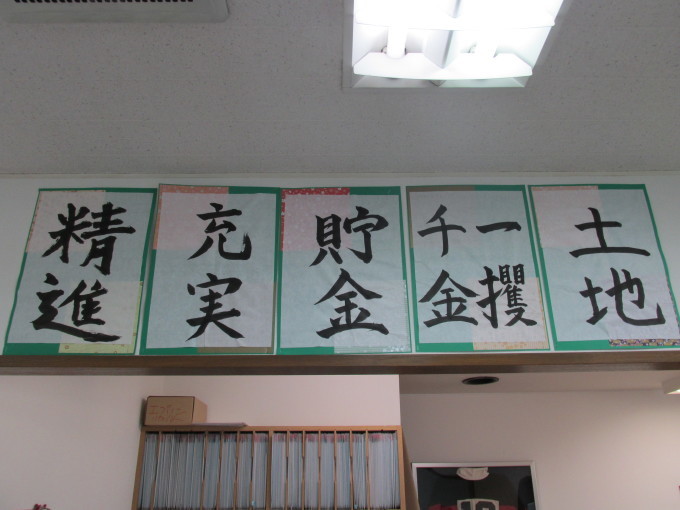 精進
充実
貯金
一攫
千金
土地